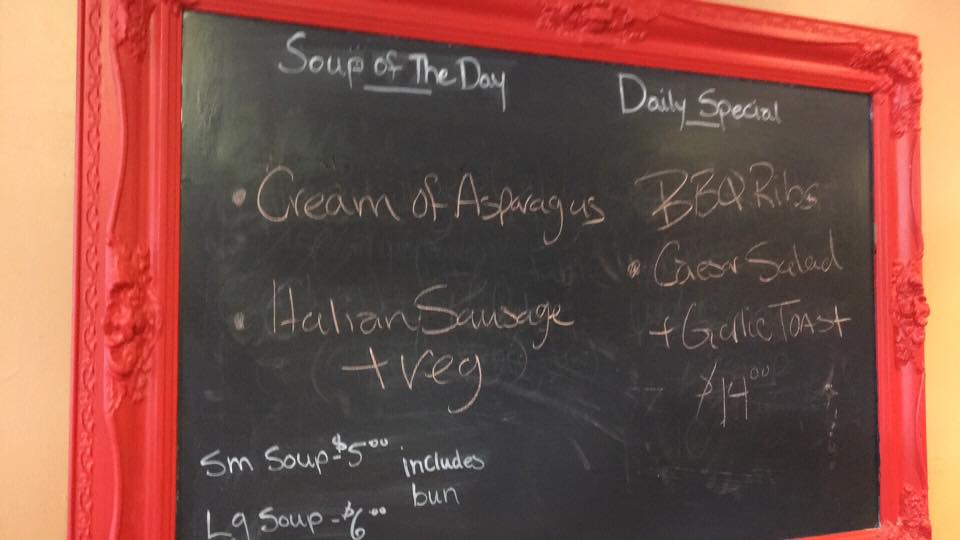 Soup of The Day
• Cream of Asparagus
• Italian Sausage
+ veg
Sm Soup - $5⁰⁰ includes
bun
Lg Soup - $6⁰⁰
Daily Special
BBQ Ribs
• Caesar Salad
+ Garlic Toast
$14⁰⁰